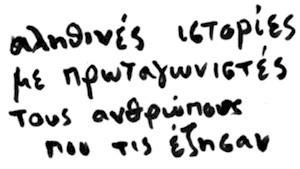 αληθινές ιστορίες
με πρωταγωνιστές
τους ανθρώπους
που τις έζησαν